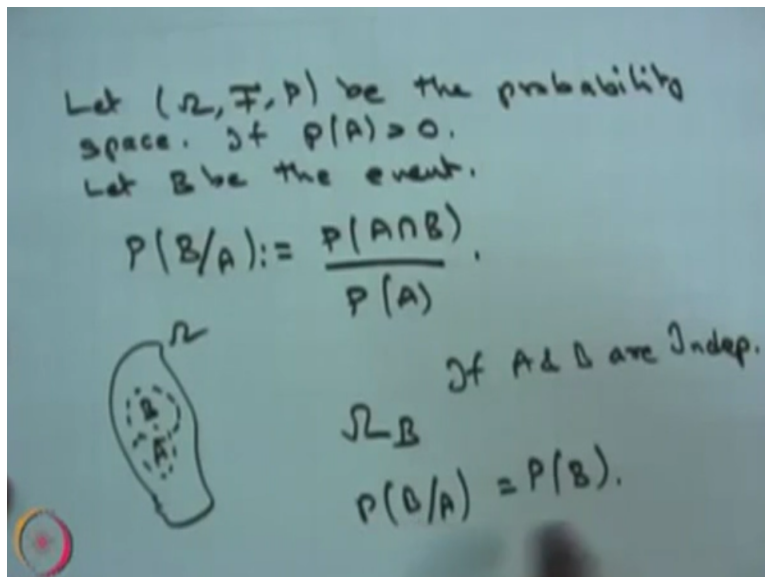 Let (Ω, F, P) be the probability
space. If P(A) > 0.
Let B be the event.
P(B/A) := P(A∩B)
P(A) .
Ω
B
A
If A & B are Indep.
Ω_B
P(B/A) = P(B).